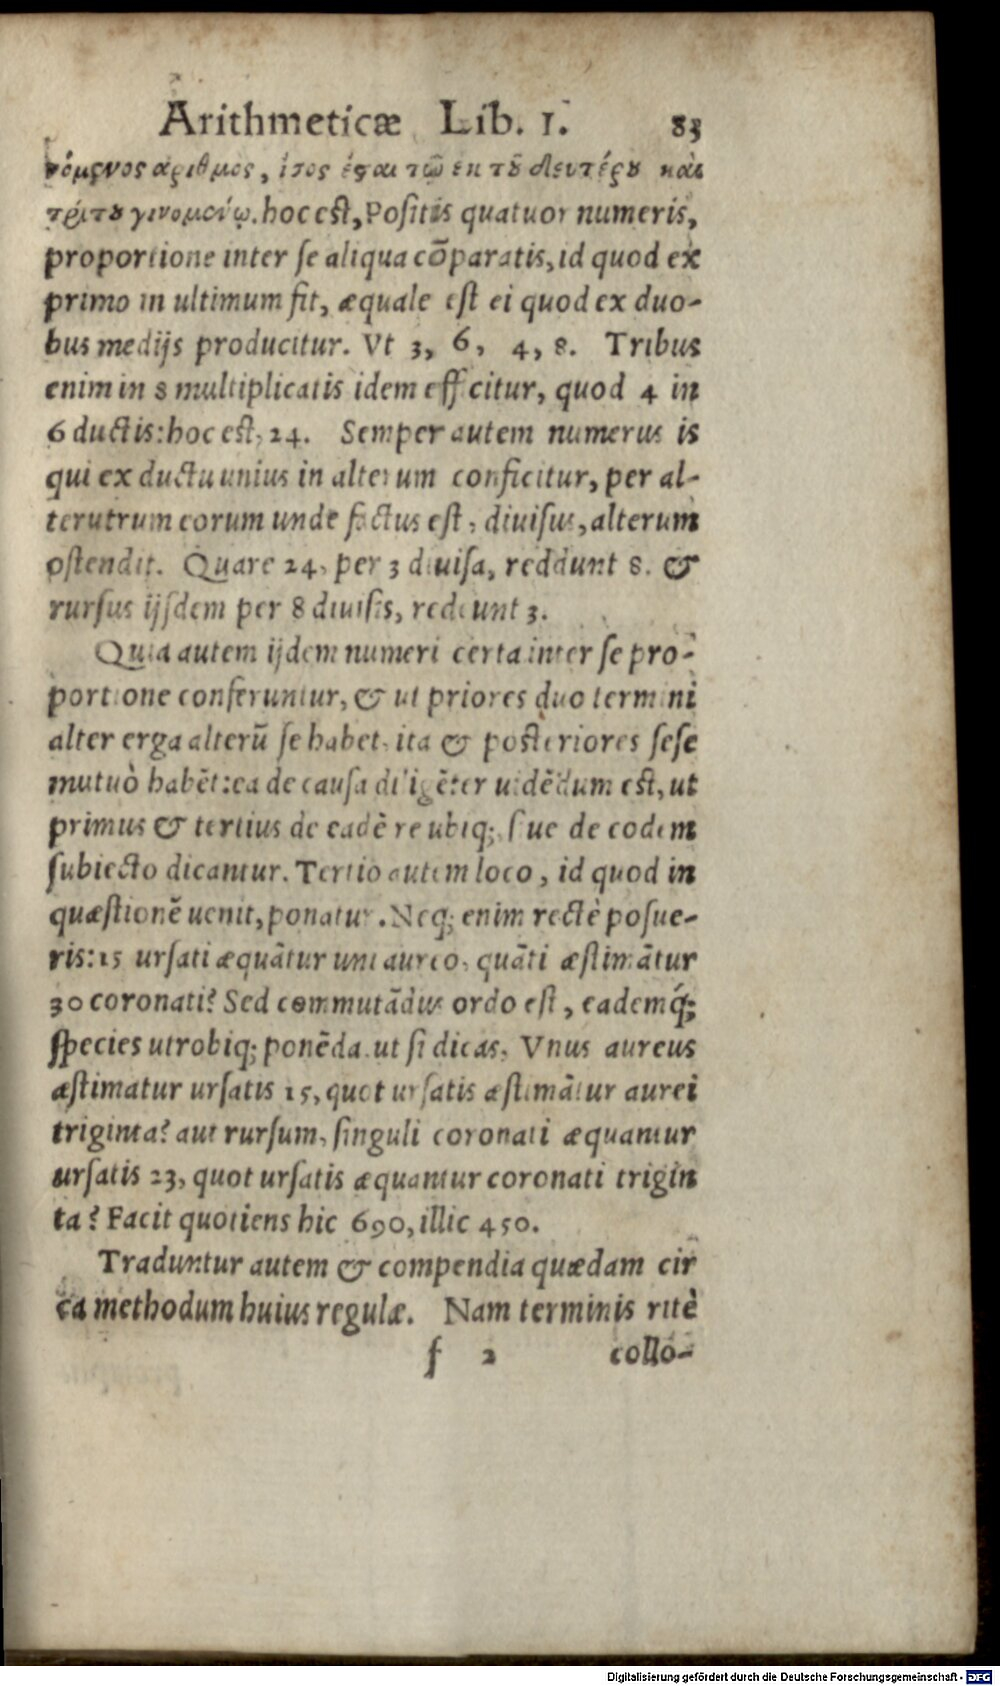 Arithmeticæ Lib. 1. 83
νόμενος ἀριθμος, ἴσος ἔσται τῶ ἐκ τοῦ δευτέρου καὶ
τρίτου γινομένῳ. hoc est, Positis quatuor numeris,
proportione inter se aliqua cōparatis, id quod ex
primo in ultimum fit, æquale est ei quod ex duo-
bus medijs producitur. Vt 3, 6, 4, 8. Tribus
enim in 8 multiplicatis idem efficitur, quod 4 in
6 ductis: hoc est, 24. Semper autem numerus is
qui ex ductu unius in alterum conficitur, per al-
terutrum eorum unde factus est, diuisus, alterum
ostendit. Quare 24, per 3 diuisa, reddunt 8. &
rursus ijsdem per 8 diuisis, redeunt 3.
Quia autem ijdem numeri certa inter se pro-
portione conferuntur, & ut priores duo termini
alter erga alterū se habet, ita & posteriores sese
mutuò habēt: ea de causa diligēter uidēdum est, ut
primus & tertius de eadē re ubiq; siue de eodem
subiecto dicantur. Tertio autem loco, id quod in
quæstionē uenit, ponatur. Neq; enim rectè posue-
ris: 15 ursati æquātur uni aureo, quāti æstimātur
30 coronati? Sed commutādus ordo est, eademq́;
species utrobiq; ponēda. ut si dicas, Vnus aureus
æstimatur ursatis 15, quot ursatis æstimātur aurei
triginta? aut rursum, singuli coronati æquantur
ursatis 23, quot ursatis æquantur coronati trigin
ta? Facit quotiens hic 690, illic 450.
Traduntur autem & compendia quædam cir
ca methodum huius regulæ. Nam terminis ritè
f 2 collo-
Digitalisierung gefördert durch die Deutsche Forschungsgemeinschaft - DFG